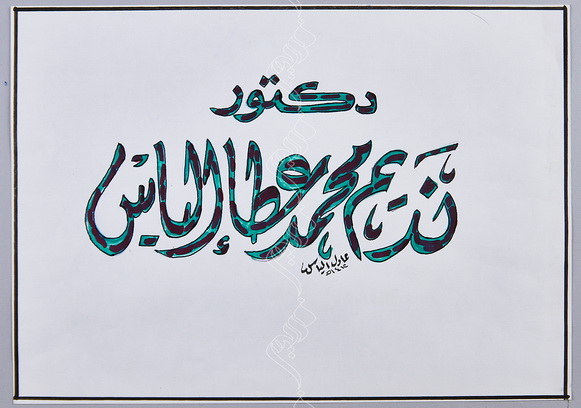 دكتور
نديم محمد عطا إلياس
عادل إلياس